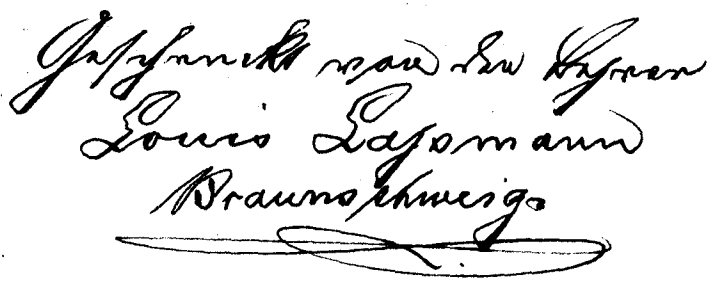 Geschenckt von den Lehrer
Louis Lassmann
Braunschweig.